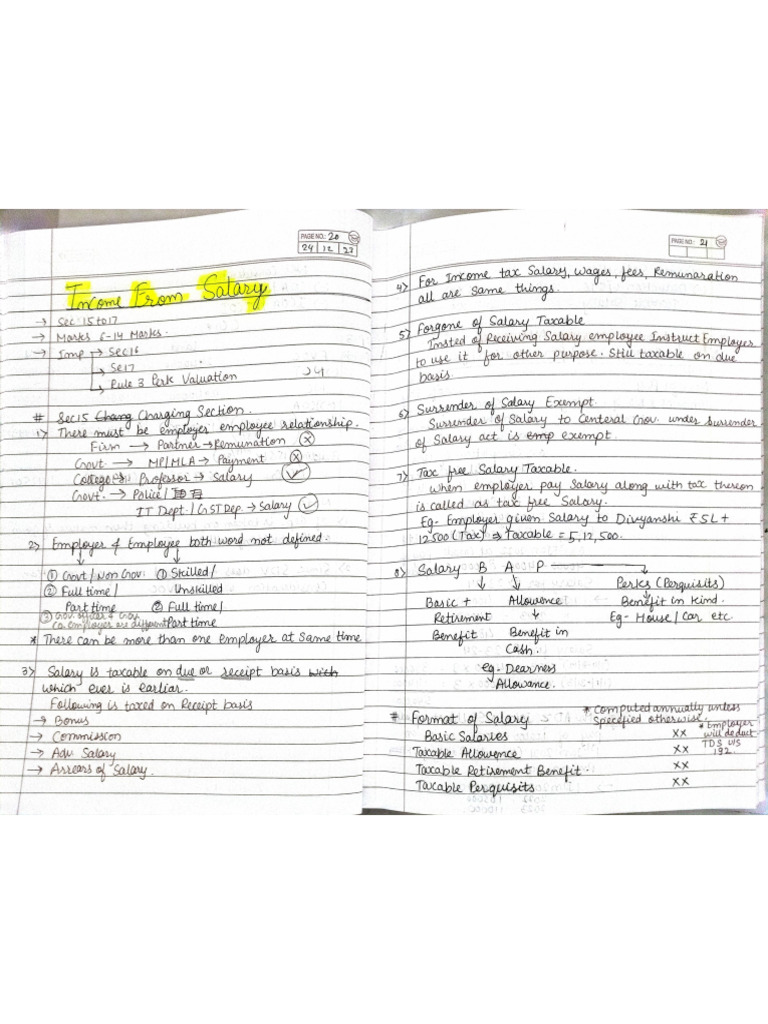 PAGE NO.: 20
24 12 22
Income From Salary
→ Sec 15 to 17
→ Marks 6-14 Marks.
→ Imp → Sec 16
→ Se17
→ Rule 3 Perk Valuation
# Sec15 Chang Charging Section.
1) There must be employer employee relationship.
Firm → Partner → Remunation ⓧ
Govt → MP/MLA → Payment ⓧ
College → Professor → Salary ✓
Govt. → Police/
IT Dept / GST Dep → Salary ✓
2) Employer & Employee both word not defined.
① Govt / Non Gov ① Skilled /
② Full time / Unskilled
Part time ② Full time /
③ Gov. officer & Gov. Part time
Co. employer are different
* There can be more than one employer at Same time
3) Salary is taxable on due or receipt basis with
which ever is earliar.
Following is taxed on Receipt basis
→ Bonus
→ Commission
→ Adv Salary
→ Arrears of Salary.
PAGE NO.: 21
4) For Income tax Salary, wages, fees, Remunaration
all are same things.
5) Forgone of Salary Taxable
Insted of Receiving Salary employee Instruct Employer
to use it for other purpose. Still taxable on due
basis.
6) Surrender of Salary Exempt.
Surrender of Salary to Centeral Gov. under Surrender
of Salary act is emp exempt.
7) Tax free Salary Taxable.
When employer pay Salary along with tax thereon
is called as tax free Salary.
Eg- Employer given Salary to Divyanshi ₹5L +
12500 (Tax) ⇒ Taxable = 5,12,500.
8) Salary B A P →
↓ ↓ Perks (Perquisits)
Basic + Allowence ↓ Benefit in Kind.
Retirement ↓ Eg- House / Car etc.
Benefit Benefit in
Cash.
eg- Dearness
Allowance.
# Format of Salary * Computed annually unless
Specefied otherwise.
Basic Salaries XX * Employer
will deduct
Taxable Allowence XX TDS u/s
192.
Taxable Retirement Benefit XX
Taxable Perquisits XX